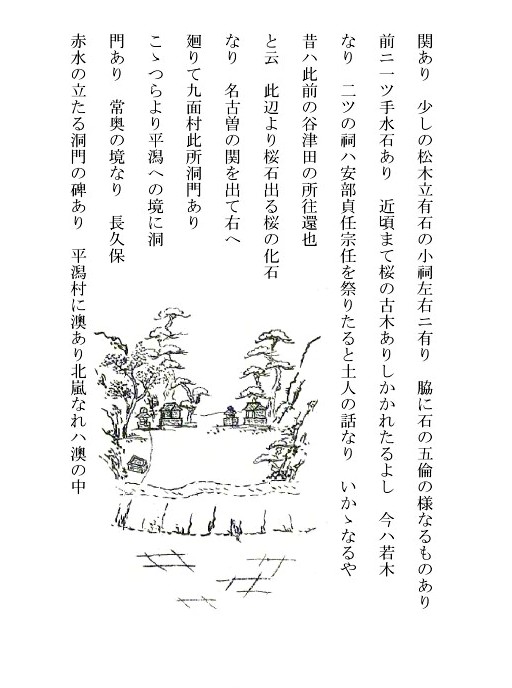 関あり　少しの松木立有石の小祠左右ニ有り　脇に石の五倫の様なるものあり
前ニ一ツ手水石あり　近頃まて桜の古木ありしかかれたるよし　今ハ若木
なり　二ツの祠ハ安部貞任宗任を祭りたると土人の話なり　いかゝなるや
昔ハ此前の谷津田の所往還也
と云　此辺より桜石出る桜の化石
なり　名古曽の関を出て右へ
廻りて九面村此所洞門あり
こゝつらより平潟への境に洞
門あり　常奥の境なり　長久保
赤水の立たる洞門の碑あり　平潟村に澳あり北嵐なれハ澳の中